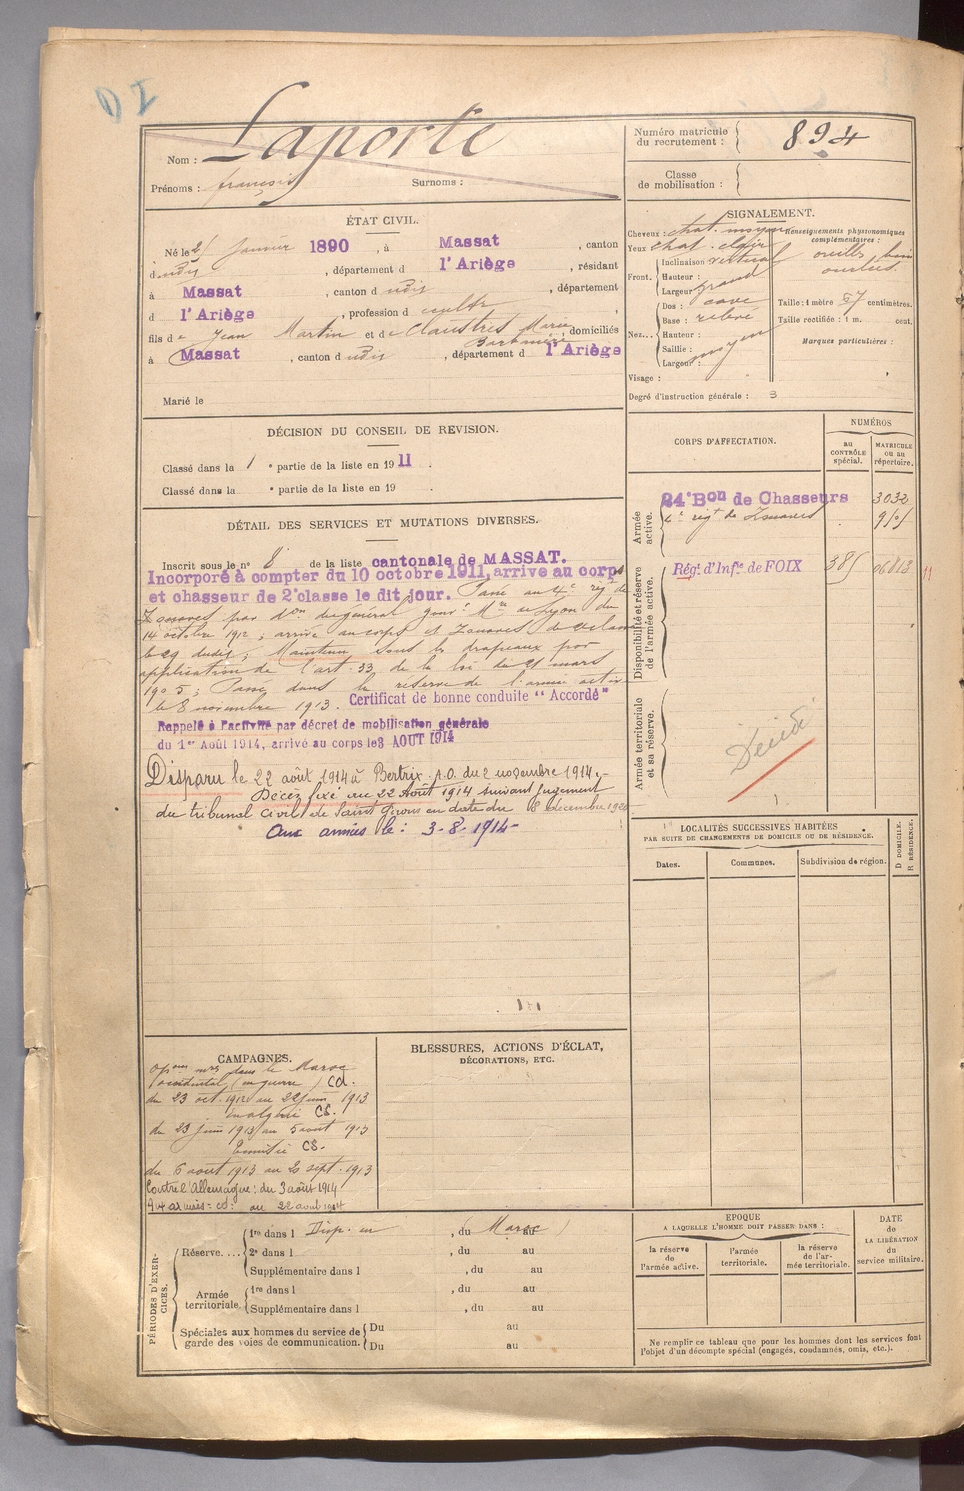 Nom : Laporte
Prénoms : françois Surnoms :
Numéro matricule du recrutement : 894
Classe de mobilisation :
ÉTAT CIVIL.
Né le janvier 1890, à Massat, canton
dudit, département d l'Ariège, résidant
à Massat, canton d udit, département
d l'Ariège, profession de cultr
fils de Jean Martin et de Claustres Marie
Barbarie, domiciliés
à Massat, canton d udit, département d l'Ariège
Marié le
SIGNALEMENT.
Cheveux : chat. moyen
Yeux chat. clair
Front. Inclinaison vertical
Hauteur :
Largeur grand
Nez... Dos : cave
Base : relevé
Hauteur :
Saillie :
Largeur : moyen
Visage :
Degré d'instruction générale : 3
Renseignements physionomiques complémentaires :
oreilles bien
ourlées
Taille : 1 mètre 57 centimètres.
Taille rectifiée : 1 m. cent.
Marques particulières :
DÉCISION DU CONSEIL DE REVISION.
Classé dans la 1 e partie de la liste en 1911.
Classé dans la e partie de la liste en 19 .
DÉTAIL DES SERVICES ET MUTATIONS DIVERSES.
Inscrit sous le n° 8 de la liste cantonale de MASSAT.
Incorporé à compter du 10 octobre 1911, arrivé au corps
et chasseur de 2e classe le dit jour. Passé au 4e régt de
Zouaves par don du général gouvr Mre de Lyon du
14 octobre 1912 ; arrivé au corps et Zouaves de 2e classe
le 29 dudit ; Maintenu sous les drapeaux par
application de l'art. 33 de la loi du 21 mars
1905 ; Passé dans la réserve de l'armée active
le 8 novembre 1913. Certificat de bonne conduite "Accordé"
Rappelé à l'activité par décret de mobilisation générale
du 1er Août 1914, arrivé au corps le 3 AOUT 1914
Disparu le 22 août 1914 à Bertrix. A.O. du 2 novembre 1914.-
Décès fixé au 22 Août 1914 suivant jugement
du tribunal civil de Saint Girons en date du 18 décembre 1920
Aux armées le : 3-8-1914-
CORPS D'AFFECTATION.
NUMÉROS
au CONTRÔLE spécial.
MATRICULE ou au répertoire.
Armée active.
24e Bon de Chasseurs 3032
4e régt de Zouaves
Disponibilité et réserve de l'armée active.
Régt d'Infie de FOIX 385 06813 11
Armée territoriale et sa réserve.
Décédé
LOCALITÉS SUCCESSIVES HABITÉES
PAR SUITE DE CHANGEMENTS DE DOMICILE OU DE RÉSIDENCE.
Dates. Communes. Subdivision de région. D DOMICILE. R RÉSIDENCE.
CAMPAGNES.
Opons mres dans le Maroc
occidental (en guerre) CD.
du 23 oct. 1912 au 22 juin 1913
en algérie CS.
du 23 juin 1913 au 5 août 1913
Tunisie CS.
du 6 août 1913 au 20 sept. 1913
Contre l'Allemagne : du 3 août 1914
Aux armées = cd : au 22 août 1914
BLESSURES, ACTIONS D'ÉCLAT,
DÉCORATIONS, ETC.
PÉRIODES D'EXERCICES.
Réserve.... 1re dans l Disp. en , du Maroc au
2e dans l , du au
Supplémentaire dans l , du au
Armée territoriale. 1re dans l , du au
Supplémentaire dans l , du au
Spéciales aux hommes du service de garde des voies de communication. Du au
Du au
EPOQUE
A LAQUELLE L'HOMME DOIT PASSER DANS :
la réserve de l'armée active.
l'armée territoriale.
la réserve de l'armée territoriale.
DATE de LA LIBÉRATION du service militaire.
Ne remplir ce tableau que pour les hommes dont les services font
l'objet d'un décompte spécial (engagés, condamnés, omis, etc.).